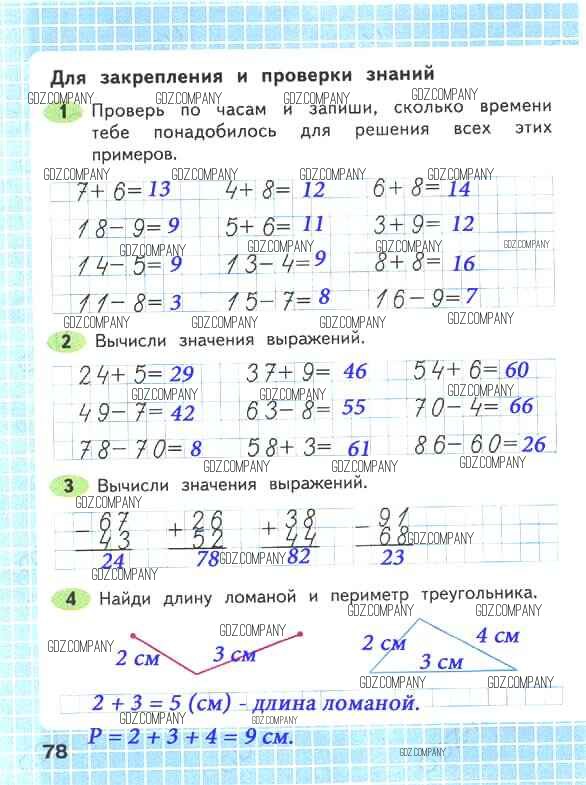 Для закрепления и проверки знаний
GDZ.COMPANY GDZ.COMPANY GDZ.COMPANY GDZ.COMPANY
1 Проверь по часам и запиши, сколько времени
тебе понадобилось для решения всех этих
примеров.
GDZ.COMPANY GDZ.COMPANY GDZ.COMPANY GDZ.COMPANY
7+6=13 4+8=12 6+8=14
18-9=9 5+6=11 3+9=12
GDZ.COMPANY GDZ.COMPANY GDZ.COMPANY GDZ.COMPANY
14-5=9 13-4=9 8+8=16
11-8=3 15-7=8 16-9=7
GDZ.COMPANY GDZ.COMPANY GDZ.COMPANY GDZ.COMPANY
2 Вычисли значения выражений.
24+5=29 37+9=46 54+6=60
GDZ.COMPANY GDZ.COMPANY GDZ.COMPANY
49-7=42 63-8=55 70-4=66
78-70=8 58+3=61 86-60=26
GDZ.COMPANY GDZ.COMPANY GDZ.COMPANY
3 Вычисли значения выражений.
GDZ.COMPANY
- 67 + 26 + 38 - 91
43 52 44 68 GDZ.COMPANY
24 78 82 23
GDZ.COMPANY GDZ.COMPANY
4 Найди длину ломаной и периметр треугольника.
GDZ.COMPANY GDZ.COMPANY
GDZ.COMPANY GDZ.COMPANY GDZ.COMPANY
2 см 3 см 2 см 4 см
3 см
GDZ.COMPANY GDZ.COMPANY GDZ.COMPANY
2 + 3 = 5 (см) - длина ломаной.
GDZ.COMPANY GDZ.COMPANY
P = 2 + 3 + 4 = 9 см.
78
GDZ.COMPANY